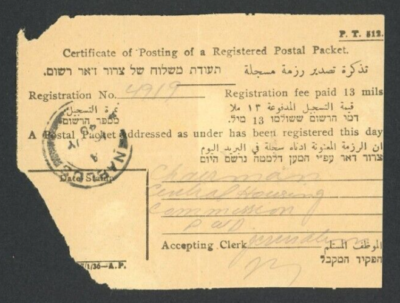 P. T. 512.
Certificate of Posting of a Registered Postal Packet.
תעודת משלוח של צרור דאר רשום. تذكرة تصدير رزمة مسجلة
Registration No. 4919 Registration fee paid 13 mils
نمرة التسجيل قيمة التسجيل المدفوعة ١٣ ملا
מספר הרשום דמי הרשום ששולמו 13 מיל.
A Postal Packet Addressed as under has been registered this day
ان الرزمة المعنونة ادناه سجلت في البريد اليوم
צרור דאר עפ״י המען דלמטה נרשם היום
NABLUS
Chairman
Date Stamp
Central Housing
Commission
P.W.D
Jerusalem
Accepting Clerk الموظف المستلم
הפקיד המקבל
/1/35—A.P.